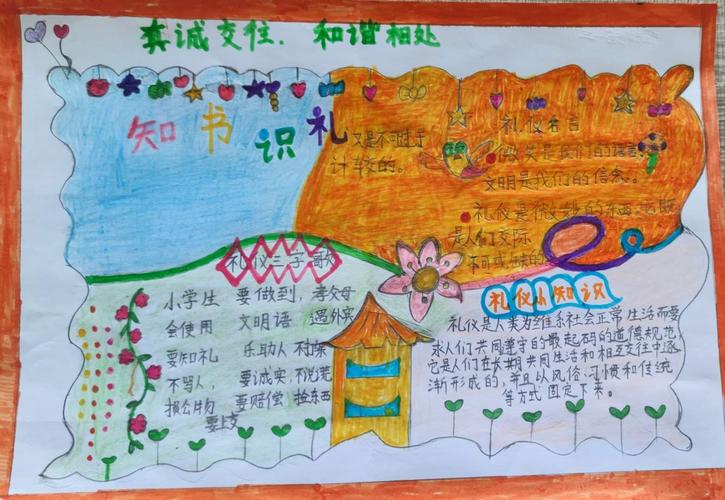 真诚交往、和谐相处
知书识礼
礼仪名言
微笑是我们的语言
文明是我们的信念。
礼仪是微妙的东西,它既
是人们交际
不可或缺的
又是不可过于
计较的。
礼仪三字歌
小学生 要做到,孝父母
会使用 文明语 遇外宾
要知礼 乐助人 不打架
不骂人, 要诚实,不说谎
损公物 要赔偿 捡东西
要上交
礼仪小知识
礼仪是人类为维系社会正常生活而要
求人们共同遵守的最起码的道德规范,
它是人们在长期共同生活和相互交往中逐
渐形成的,并且以风俗、习惯和传统
等方式固定下来。